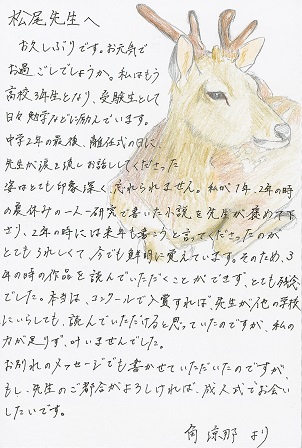 松尾先生へ
お久しぶりです。お元気で
お過ごしでしょうか。私はもう
高校3年生となり、受験生として
日々勉学などに励んでいます。
中学2年の最後、離任式の日に、
先生が涙を流しお話してくださった
姿はとても印象深く、忘れられません。私が1年、2年の時
の夏休みの一人一研究で書いた小説を先生が褒め下
さり、2年の時には来年も書こうと言ってくださったのが
とてもうれしくて、今でも鮮明に覚えています。そのため、3
年の時の作品を読んでいただくことができず、とても残念
でした。本当は、コンクールで入賞すれば、先生が他の学校
にいらしても、読んでいただけると思っていたのですが、私の
力が足りず、叶いませんでした。
お別れのメッセージでも書かせていただいたのですが、
もし、先生のご都合がよろしければ、成人式でお会い
したいです。
角 涼那 より